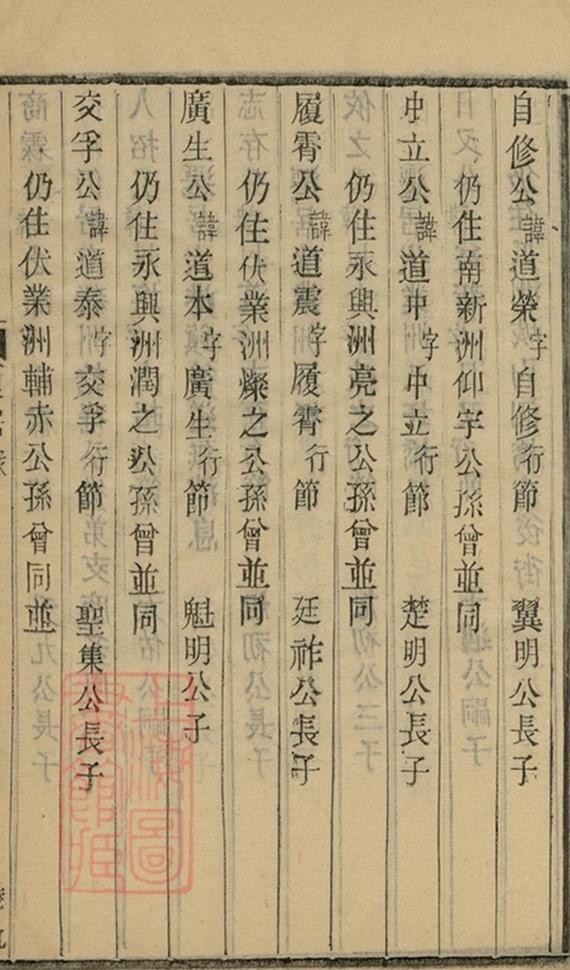 自修公諱道榮字自修行節　翼明公長子
仍住南新洲仰宇公孫曾並同
中立公諱道中字中立行節　楚明公長子
仍住永興洲亮之公孫曾並同
履霄公諱道震字履霄行節　廷祚公長子
仍住伏業洲燦之公孫曾並同
廣生公諱道本字廣生行節　魁明公子
仍住永興洲潤之公孫曾並同
交孚公諱道泰字交孚行節　聖集公長子
仍住伏業洲輔赤公孫曾同並